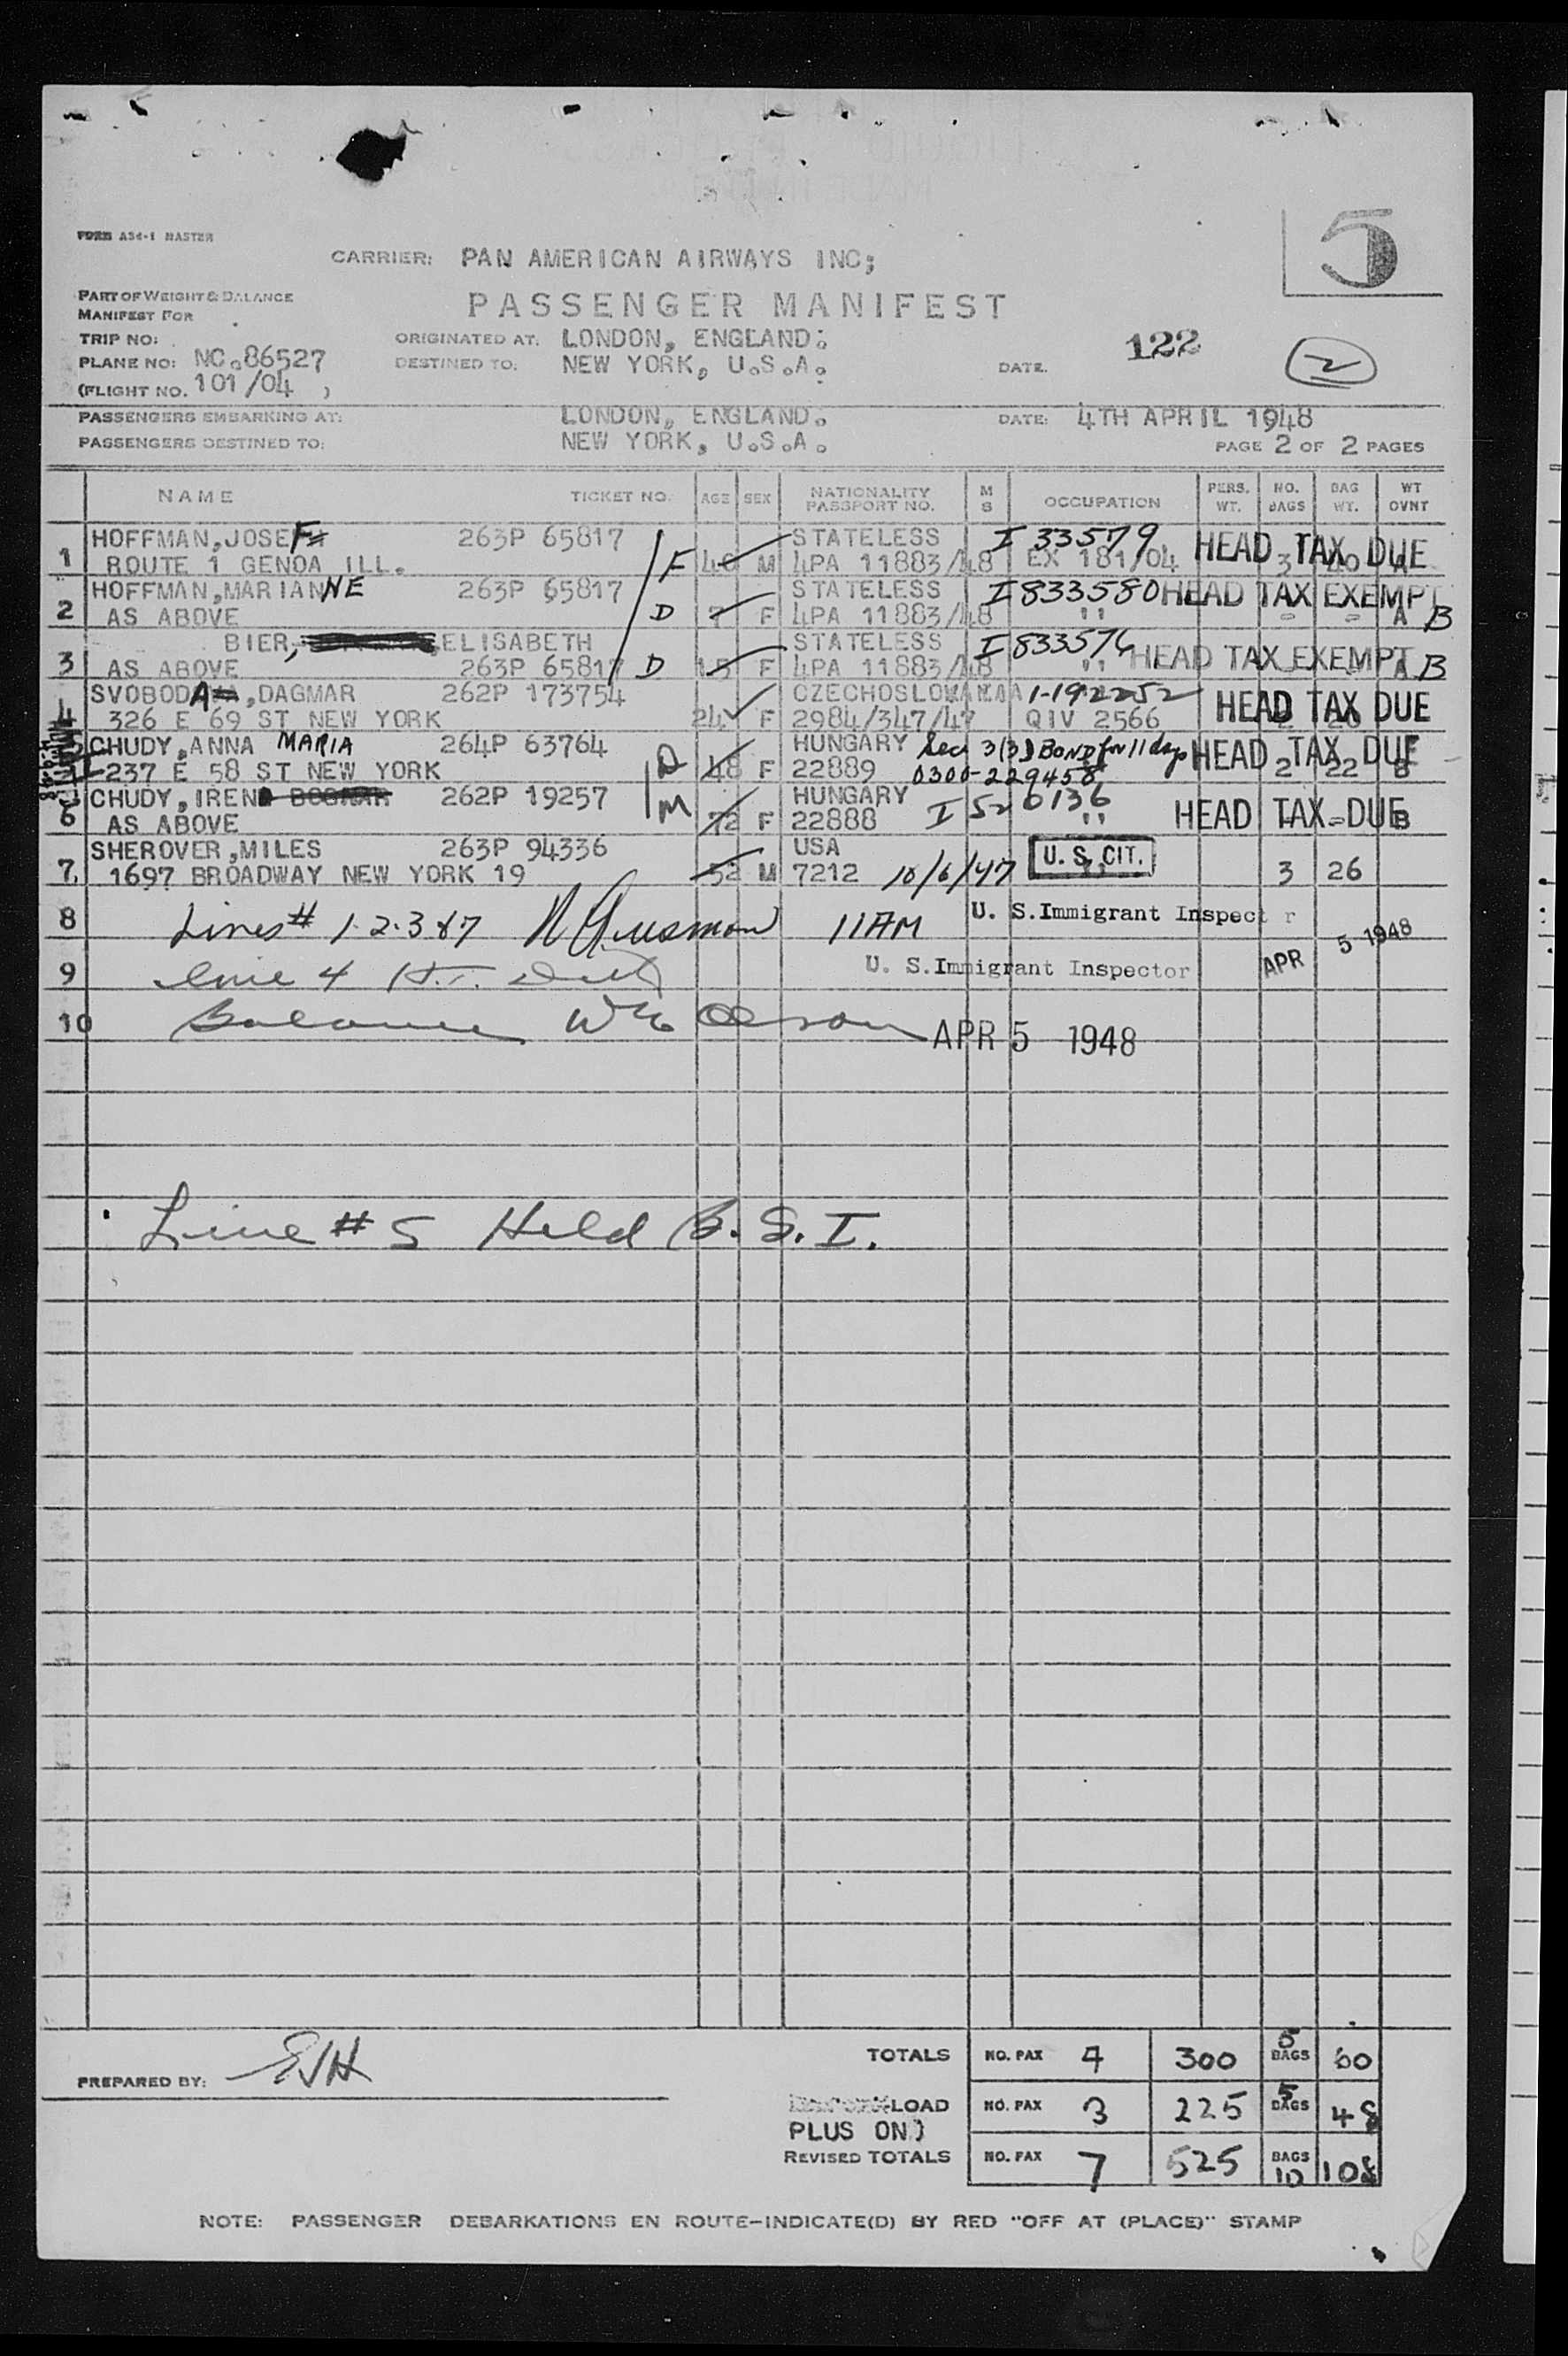 5
FORM A34-1 MASTER
CARRIER: PAN AMERICAN AIRWAYS INC;
PART OF WEIGHT & BALANCE
MANIFEST FOR
PASSENGER MANIFEST
TRIP NO:
ORIGINATED AT: LONDON, ENGLAND.
122
2
PLANE NO: NC.86527
DESTINED TO: NEW YORK, U.S.A.
DATE.
(FLIGHT NO. 101/04 )
PASSENGERS EMBARKING AT: LONDON, ENGLAND. DATE: 4TH APRIL 1948
PASSENGERS DESTINED TO: NEW YORK, U.S.A. PAGE 2 OF 2 PAGES
NAME TICKET NO. AGE SEX NATIONALITY PASSPORT NO. M S OCCUPATION PERS. WT. NO. BAGS BAG WT. WT OVNT
HOFFMAN,JOSEF 263P 65817 STATELESS I 33579 HEAD TAX DUE
1 ROUTE 1 GENOA ILL. F 46 M 4PA 11883/48 EX 181/04 3 40 A
HOFFMAN,MARIANNE 263P 65817 STATELESS I 833580 HEAD TAX EXEMPT
2 AS ABOVE D 7 F 4PA 11883/48 " - - A B
BIER, ELISABETH STATELESS I 833576 HEAD TAX EXEMPT
3 AS ABOVE 263P 65817 D 15 F 4PA 11883/48 " A B
SVOBODA,DAGMAR 262P 173754 CZECHOSLOVAKIA I-192252 HEAD TAX DUE
4 326 E 69 ST NEW YORK 24 F 2984/347/47 QIV 2566 2 20
CHUDY,ANNA MARIA 264P 63764 D HUNGARY Sec 3(3) BOND for 11 days HEAD TAX DUE
237 E 58 ST NEW YORK 48 F 22889 0300-229458 2 22 B
CHUDY,IREN 262P 19257 M HUNGARY I 526136 HEAD TAX DUE
6 AS ABOVE 72 F 22888 " - B
SHEROVER,MILES 263P 94336 USA U. S. CIT.
7 1697 BROADWAY NEW YORK 19 52 M 7212 10/6/47 3 26
8 Lines # 1-2-3 & 7 11AM U. S.Immigrant Inspector
APR 5 1948
9 Line 4 U. S.Immigrant Inspector
10 Balance APR 5 1948
Line #5 Held B.S.I.
PREPARED BY: EJH
TOTALS NO. PAX 4 300 5 BAGS 60
LOAD NO. PAX 3 225 5 BAGS 48
PLUS ON)
REVISED TOTALS NO. PAX 7 525 BAGS 10 108
NOTE: PASSENGER DEBARKATIONS EN ROUTE-INDICATE(D) BY RED "OFF AT (PLACE)" STAMP